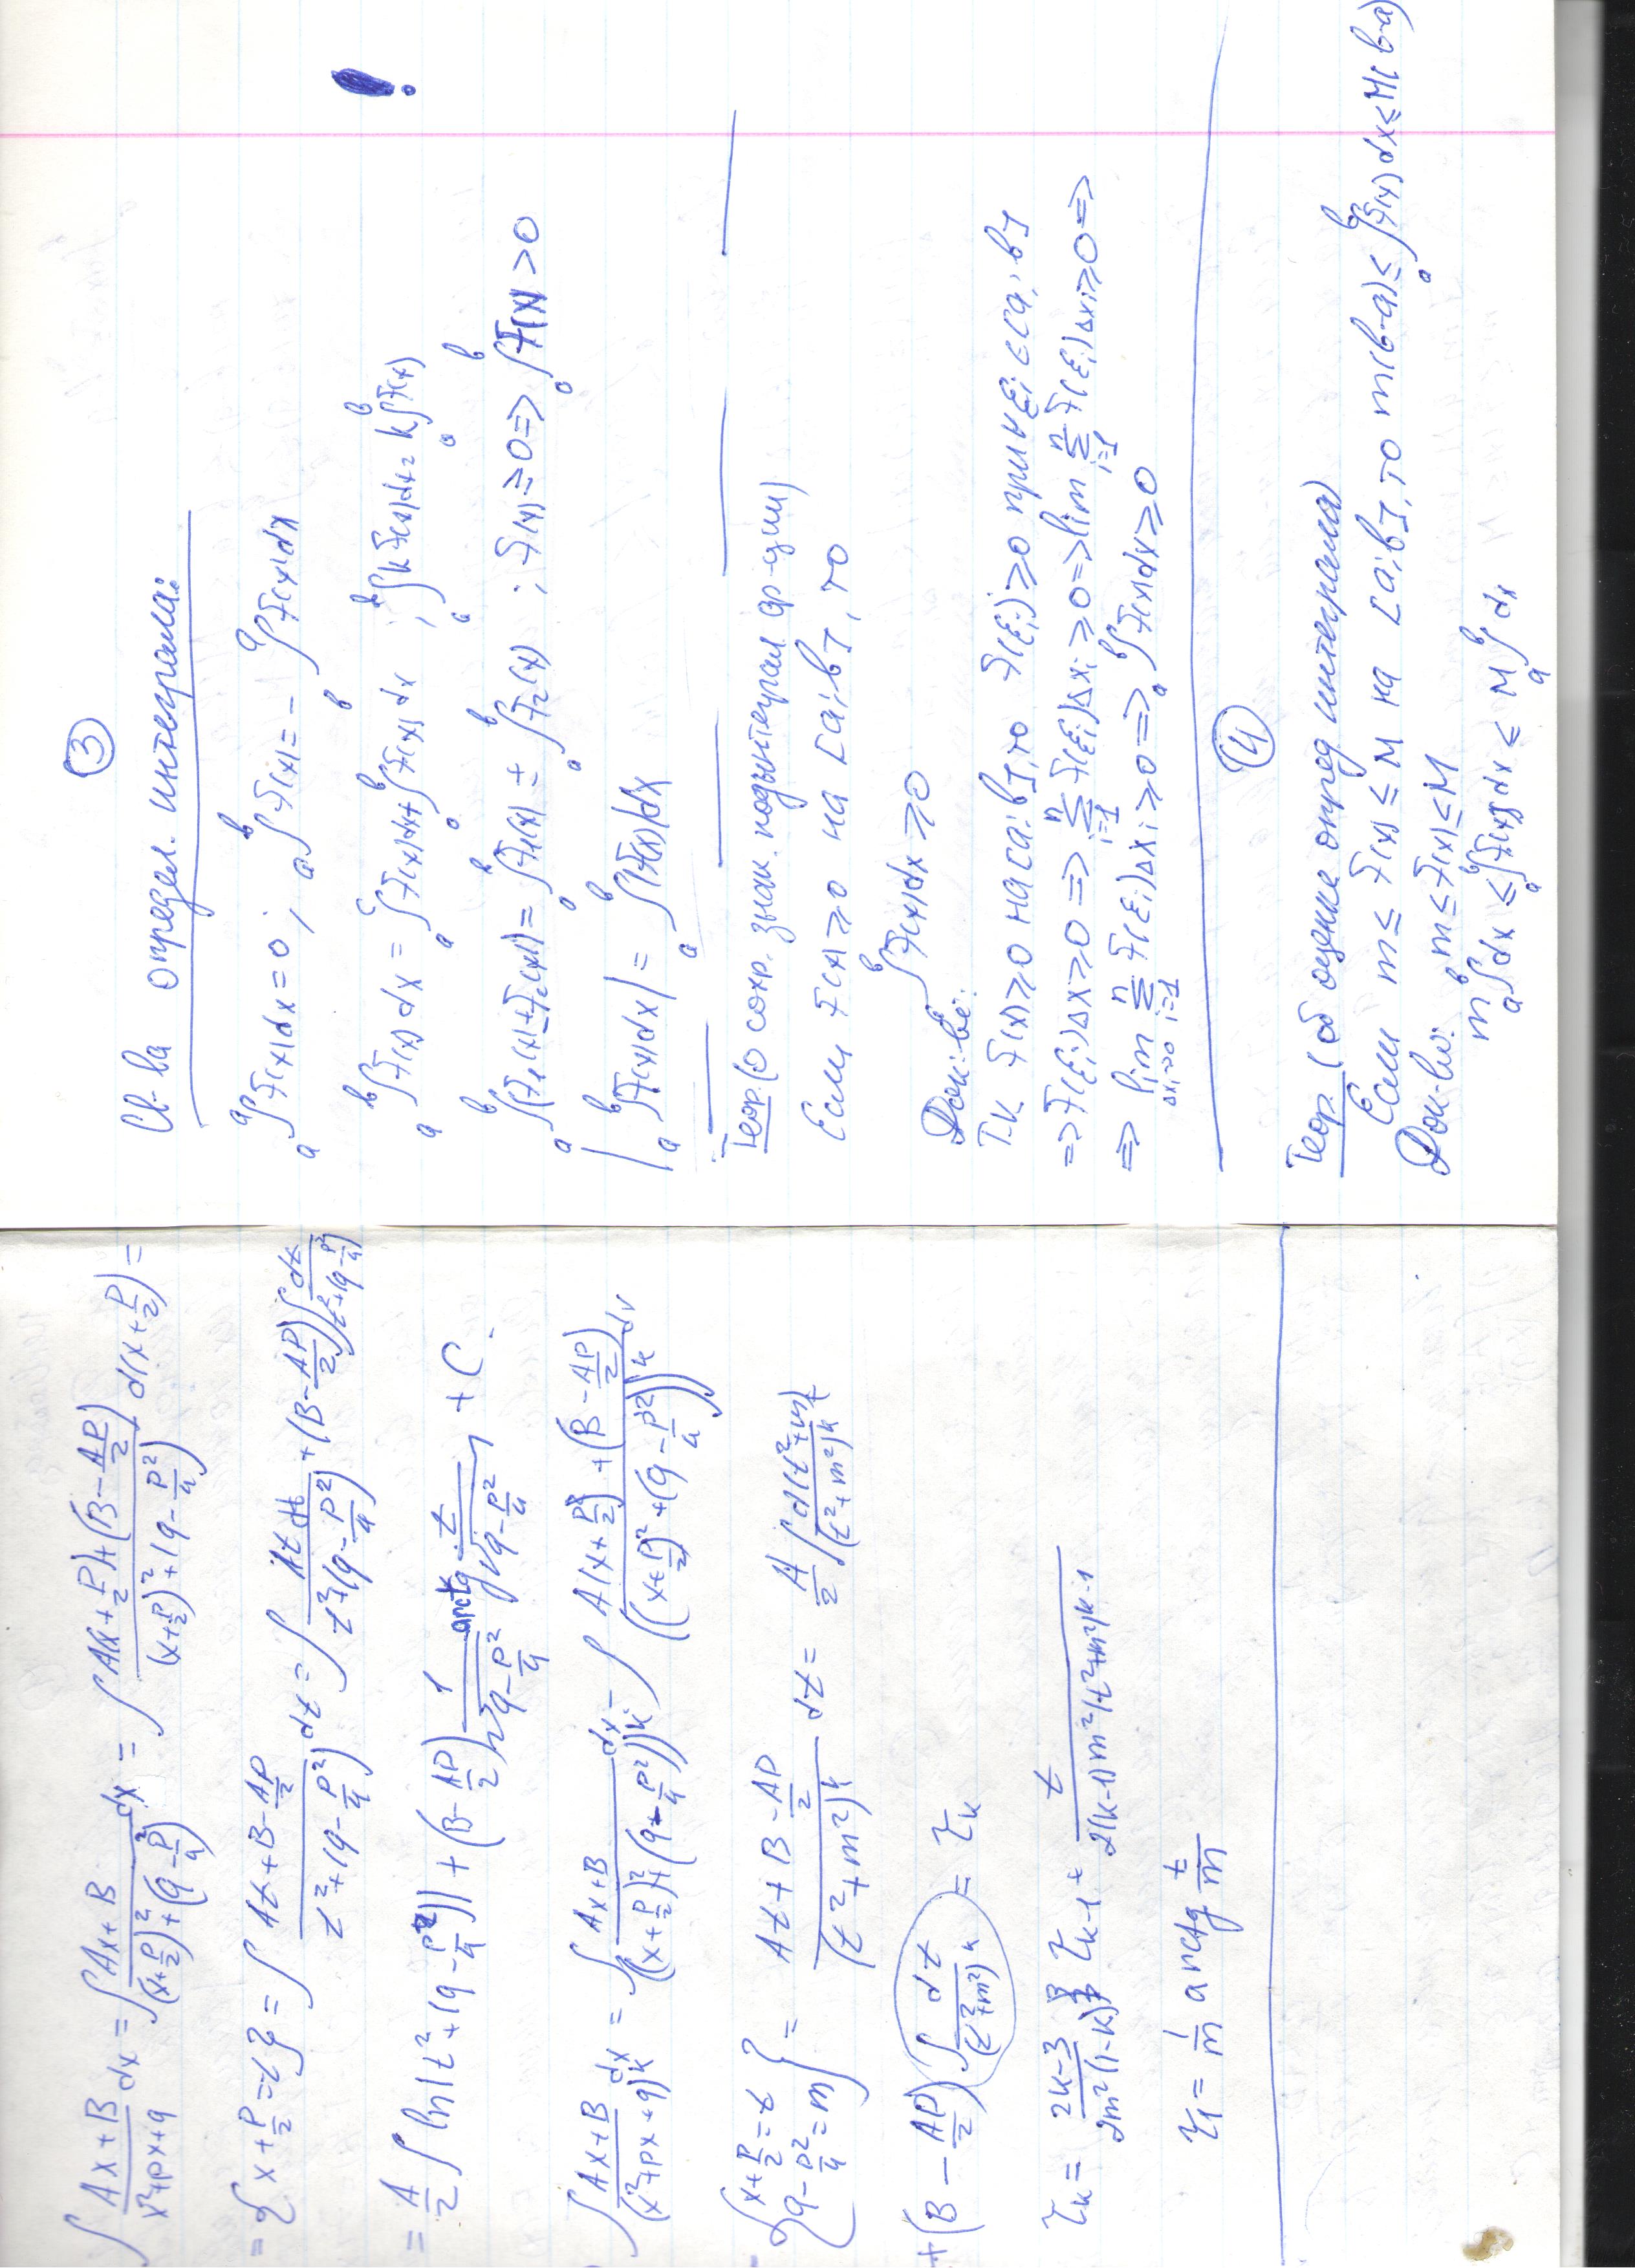 ∫ (Ax+B)/(x²+px+q) dx = ∫ (Ax+B)/((x+p/2)²+(q-p²/4)) dx = ∫ (A(x+p/2)+(B-Ap/2))/((x+p/2)²+(q-p²/4)) d(x+p/2) =
= {x+p/2=t} = ∫ (At+B-Ap/2)/(t²+(q-p²/4)) dt = ∫ (At dt)/(t²+(q-p²/4)) + (B-Ap/2) ∫ dt/(t²+(q-p²/4))
= A/2 ∫ ln|t²+(q-p²/4)| + (B-Ap/2) 1/√(q-p²/4) arctg t/√(q-p²/4) + C.
∫ (Ax+B)/(x²+px+q)^k dx = ∫ (Ax+B)/((x+p/2)²+(q-p²/4))^k dx - ∫ (A(x+p/2)+(B-Ap/2))/((x+p/2)²+(q-p²/4))^k dx
= {x+p/2=t
q-p²/4=m} = (At+B-Ap/2)/(t²+m²)^k dt = A/2 ∫ d(t²+m)/(t²+m²)^k +
+(B-Ap/2) ∫ dt/(t²+m²)^k = τk
τk = (2k-3)/(2m²(1-k)) τk-1 + t/(2(k-1)m²(t²+m²)^k-1
τ1 = 1/m arctg t/m
③
!
Св-ва определ. интеграла:
a∫a f(x)dx=0 ; a∫b f(x)= - b∫a f(x)dx
a∫b f(x)dx = a∫c f(x)dx+ c∫b f(x)dx ; a∫b kf(x)dx= k a∫b f(x)
a∫b(f1(x)±f2(x))= a∫b f1(x) ± a∫b f2(x) ; f(x)≥0=> a∫b f(x)>0
|a∫b f(x)dx|= a∫b |f(x)|dx
Теор.(о сохр. знак. подынтеграл ф-ции)
Если f(x)≥0 на [a;b], то
a∫b f(x)dx≥0
Док-ве:
Т.к f(x)≥0 на [a;b], то f(ξi)≥0 при ∀ξi∈[a;b]
=>f(ξi)Δx≥0 => n∑i=1 f(ξi)Δxi≥0=>lim n∑i=1 f(ξi)Δxi≥0=>
=> lim Δxi→0 n∑i=1 f(ξi)Δxi≥0=> a∫b f(x)dx≥0
④
Теор. (об оценке опред интеграла)
Если m≤f(x)≤M на [a;b], то m(b-a)≤ a∫b f(x)dx≤M(b-a)
Док-во: m≤f(x)≤M
m a∫b dx ≤ a∫b f(x)dx ≤ M a∫b dx